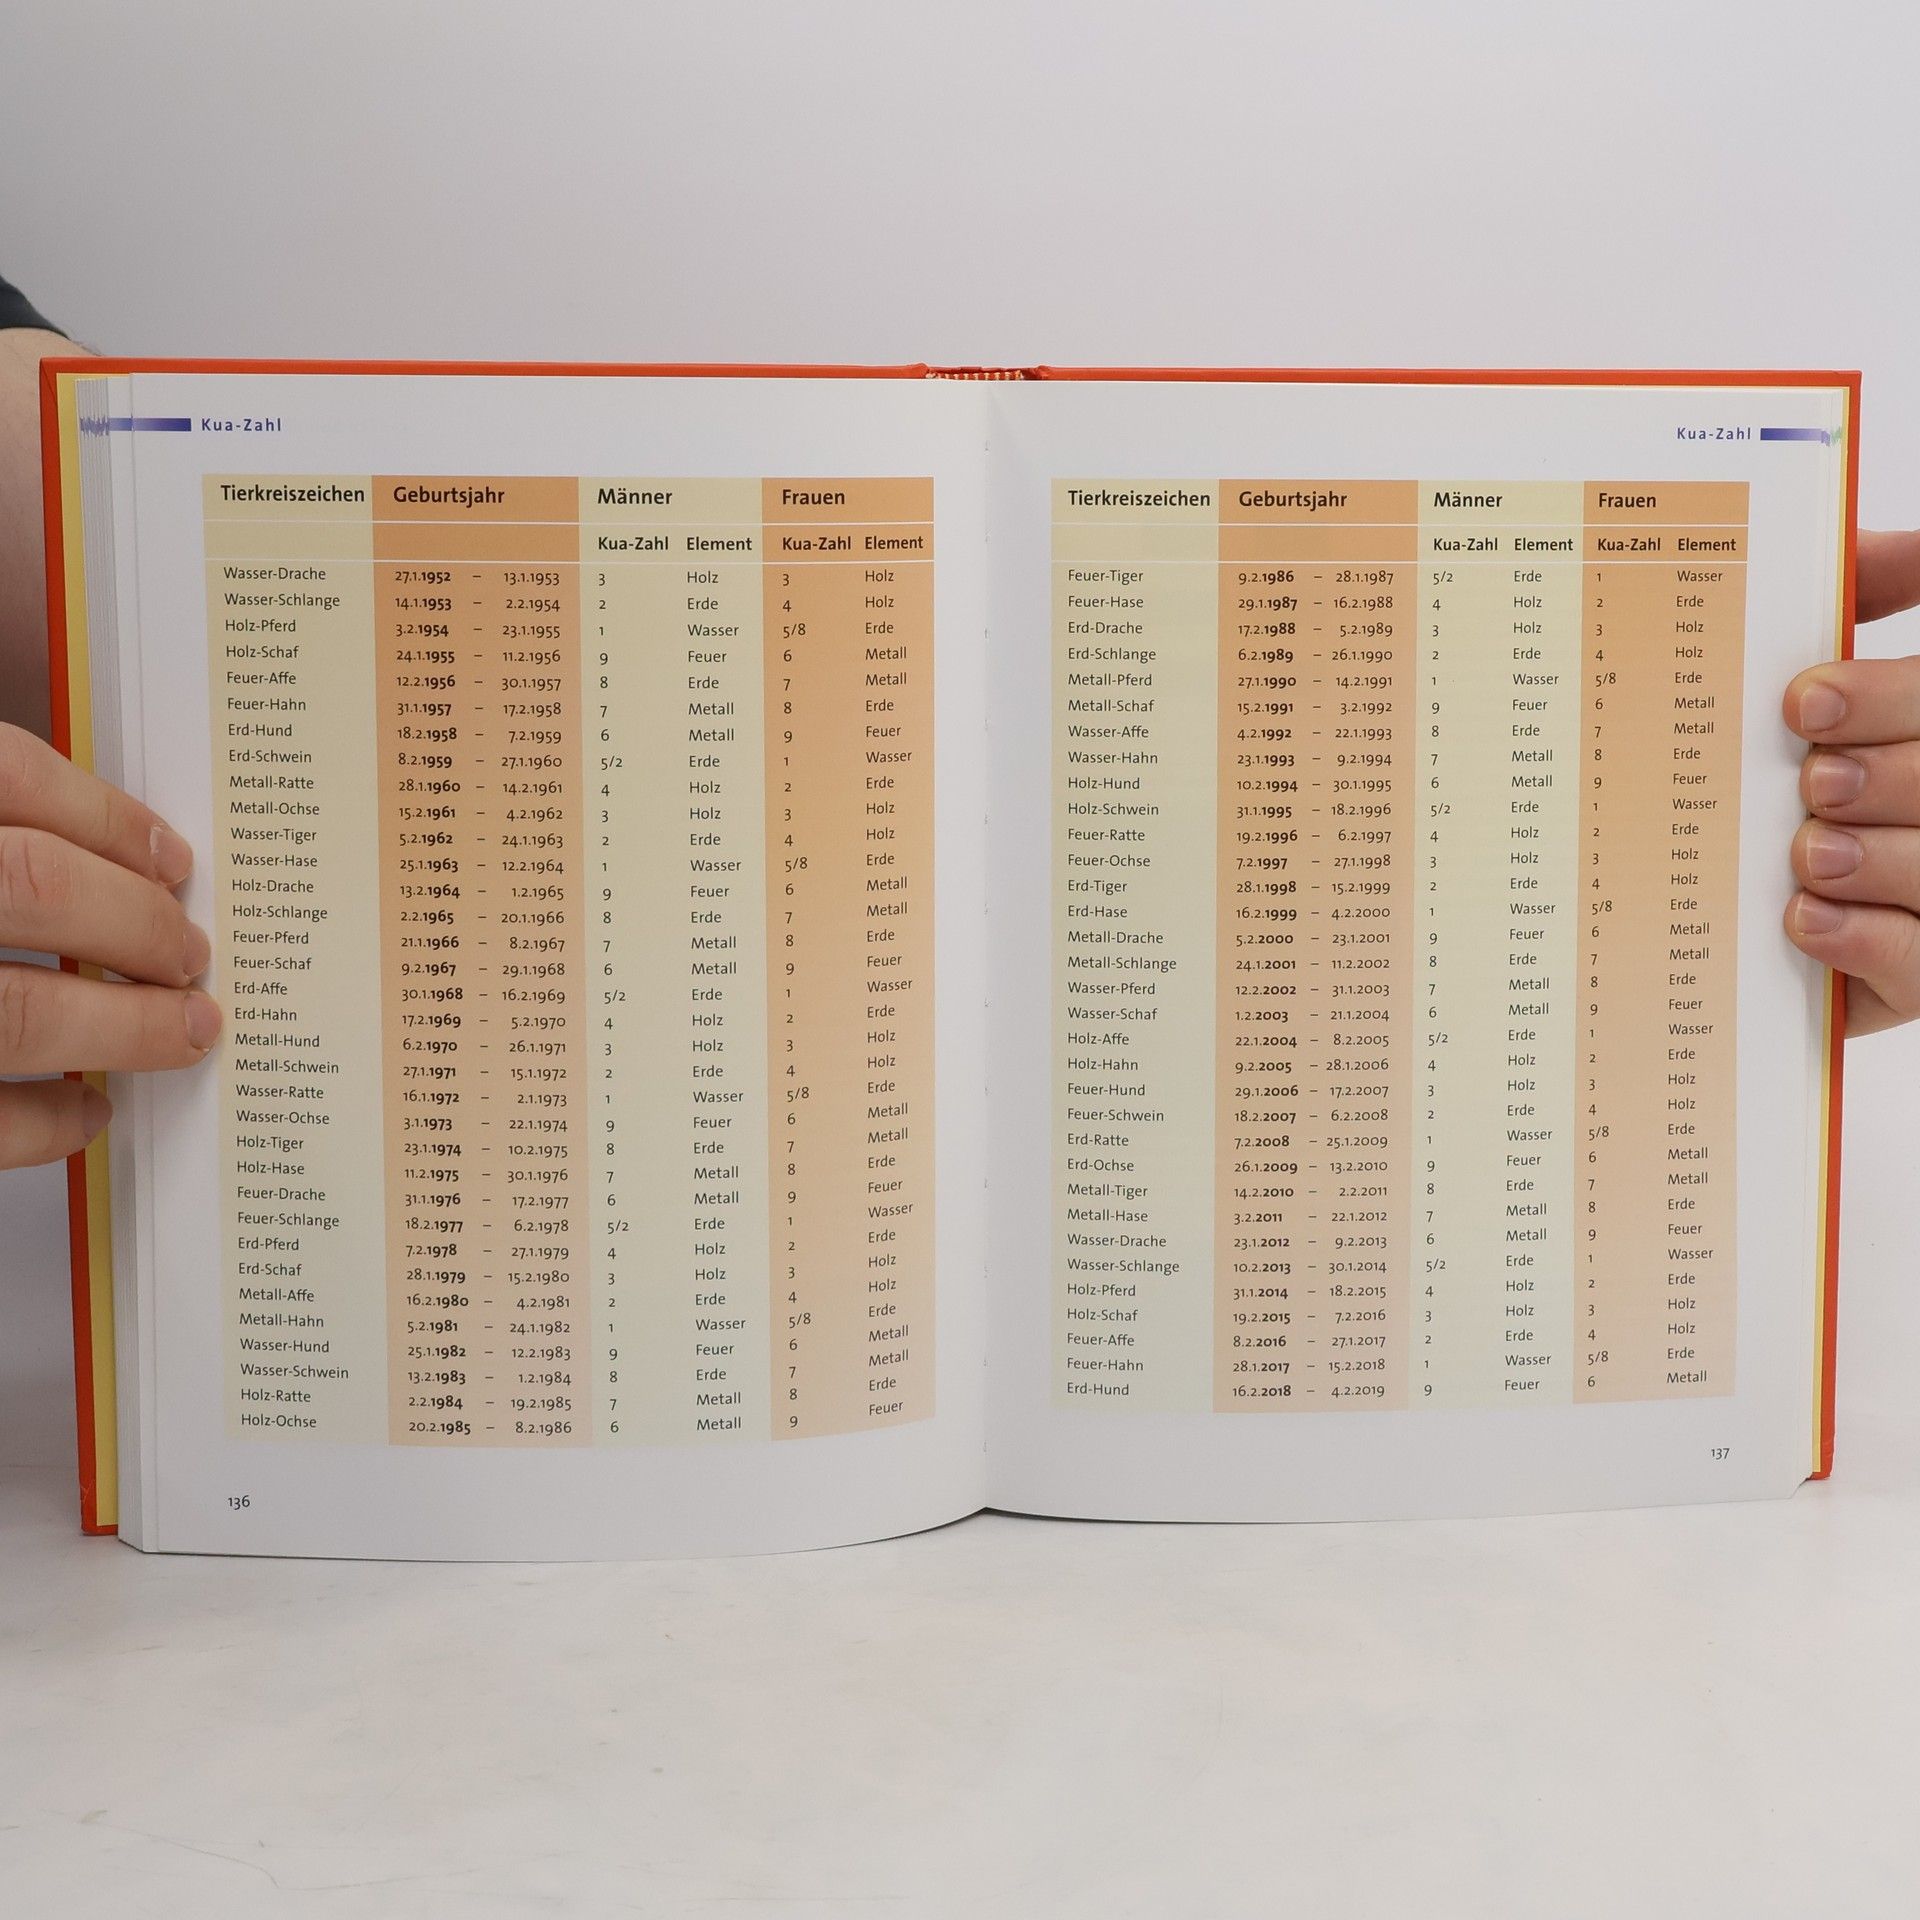 Kua-Zahl
Tierkreiszeichen Geburtsjahr Männer Frauen
Kua-Zahl Element Kua-Zahl Element
Wasser-Drache 27.1.1952 – 13.1.1953 3 Holz 3 Holz
Wasser-Schlange 14.1.1953 – 2.2.1954 2 Erde 4 Holz
Holz-Pferd 3.2.1954 – 23.1.1955 1 Wasser 5/8 Erde
Holz-Schaf 24.1.1955 – 11.2.1956 9 Feuer 6 Metall
Feuer-Affe 12.2.1956 – 30.1.1957 8 Erde 7 Metall
Feuer-Hahn 31.1.1957 – 17.2.1958 7 Metall 8 Erde
Erd-Hund 18.2.1958 – 7.2.1959 6 Metall 9 Feuer
Erd-Schwein 8.2.1959 – 27.1.1960 5/2 Erde 1 Wasser
Metall-Ratte 28.1.1960 – 14.2.1961 4 Holz 2 Erde
Metall-Ochse 15.2.1961 – 4.2.1962 3 Holz 3 Holz
Wasser-Tiger 5.2.1962 – 24.1.1963 2 Erde 4 Holz
Wasser-Hase 25.1.1963 – 12.2.1964 1 Wasser 5/8 Erde
Holz-Drache 13.2.1964 – 1.2.1965 9 Feuer 6 Metall
Holz-Schlange 2.2.1965 – 20.1.1966 8 Erde 7 Metall
Feuer-Pferd 21.1.1966 – 8.2.1967 7 Metall 8 Erde
Feuer-Schaf 9.2.1967 – 29.1.1968 6 Metall 9 Feuer
Erd-Affe 30.1.1968 – 16.2.1969 5/2 Erde 1 Wasser
Erd-Hahn 17.2.1969 – 5.2.1970 4 Holz 2 Erde
Metall-Hund 6.2.1970 – 26.1.1971 3 Holz 3 Holz
Metall-Schwein 27.1.1971 – 15.1.1972 2 Erde 4 Holz
Wasser-Ratte 16.1.1972 – 2.1.1973 1 Wasser 5/8 Erde
Wasser-Ochse 3.1.1973 – 22.1.1974 9 Feuer 6 Metall
Holz-Tiger 23.1.1974 – 10.2.1975 8 Erde 7 Metall
Holz-Hase 11.2.1975 – 30.1.1976 7 Metall 8 Erde
Feuer-Drache 31.1.1976 – 17.2.1977 6 Metall 9 Feuer
Feuer-Schlange 18.2.1977 – 6.2.1978 5/2 Erde 1 Wasser
Erd-Pferd 7.2.1978 – 27.1.1979 4 Holz 2 Erde
Erd-Schaf 28.1.1979 – 15.2.1980 3 Holz 3 Holz
Metall-Affe 16.2.1980 – 4.2.1981 2 Erde 4 Holz
Metall-Hahn 5.2.1981 – 24.1.1982 1 Wasser 5/8 Erde
Wasser-Hund 25.1.1982 – 12.2.1983 9 Feuer 6 Metall
Wasser-Schwein 13.2.1983 – 1.2.1984 8 Erde 7 Metall
Holz-Ratte 2.2.1984 – 19.2.1985 7 Metall 8 Erde
Holz-Ochse 20.2.1985 – 8.2.1986 6 Metall 9 Feuer
136
Kua-Zahl
Tierkreiszeichen Geburtsjahr Männer Frauen
Kua-Zahl Element Kua-Zahl Element
Feuer-Tiger 9.2.1986 – 28.1.1987 5/2 Erde 1 Wasser
Feuer-Hase 29.1.1987 – 16.2.1988 4 Holz 2 Erde
Erd-Drache 17.2.1988 – 5.2.1989 3 Holz 3 Holz
Erd-Schlange 6.2.1989 – 26.1.1990 2 Erde 4 Holz
Metall-Pferd 27.1.1990 – 14.2.1991 1 Wasser 5/8 Erde
Metall-Schaf 15.2.1991 – 3.2.1992 9 Feuer 6 Metall
Wasser-Affe 4.2.1992 – 22.1.1993 8 Erde 7 Metall
Wasser-Hahn 23.1.1993 – 9.2.1994 7 Metall 8 Erde
Holz-Hund 10.2.1994 – 30.1.1995 6 Metall 9 Feuer
Holz-Schwein 31.1.1995 – 18.2.1996 5/2 Erde 1 Wasser
Feuer-Ratte 19.2.1996 – 6.2.1997 4 Holz 2 Erde
Feuer-Ochse 7.2.1997 – 27.1.1998 3 Holz 3 Holz
Erd-Tiger 28.1.1998 – 15.2.1999 2 Erde 4 Holz
Erd-Hase 16.2.1999 – 4.2.2000 1 Wasser 5/8 Erde
Metall-Drache 5.2.2000 – 23.1.2001 9 Feuer 6 Metall
Metall-Schlange 24.1.2001 – 11.2.2002 8 Erde 7 Metall
Wasser-Pferd 12.2.2002 – 31.1.2003 7 Metall 8 Erde
Wasser-Schaf 1.2.2003 – 21.1.2004 6 Metall 9 Feuer
Holz-Affe 22.1.2004 – 8.2.2005 5/2 Erde 1 Wasser
Holz-Hahn 9.2.2005 – 28.1.2006 4 Holz 2 Erde
Feuer-Hund 29.1.2006 – 17.2.2007 3 Holz 3 Holz
Feuer-Schwein 18.2.2007 – 6.2.2008 2 Erde 4 Holz
Erd-Ratte 7.2.2008 – 25.1.2009 1 Wasser 5/8 Erde
Erd-Ochse 26.1.2009 – 13.2.2010 9 Feuer 6 Metall
Metall-Tiger 14.2.2010 – 2.2.2011 8 Erde 7 Metall
Metall-Hase 3.2.2011 – 22.1.2012 7 Metall 8 Erde
Wasser-Drache 23.1.2012 – 9.2.2013 6 Metall 9 Feuer
Wasser-Schlange 10.2.2013 – 30.1.2014 5/2 Erde 1 Wasser
Holz-Pferd 31.1.2014 – 18.2.2015 4 Holz 2 Erde
Holz-Schaf 19.2.2015 – 7.2.2016 3 Holz 3 Holz
Feuer-Affe 8.2.2016 – 27.1.2017 2 Erde 4 Holz
Feuer-Hahn 28.1.2017 – 15.2.2018 1 Wasser 5/8 Erde
Erd-Hund 16.2.2018 – 4.2.2019 9 Feuer 6 Metall
137